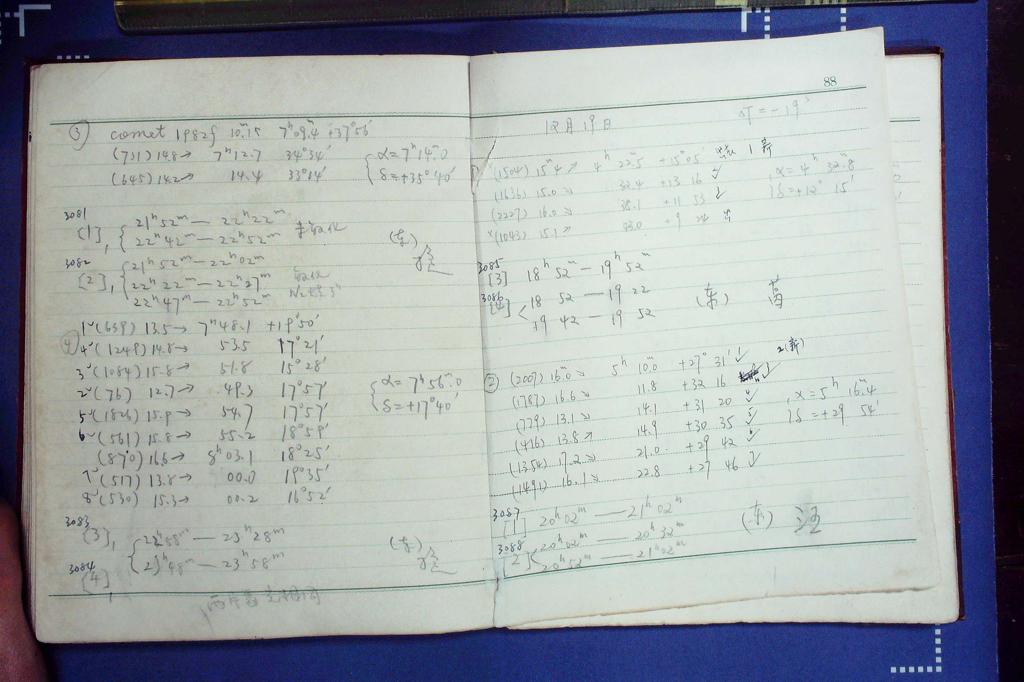 ③ comet 1982f 10ᵐ.15 7ʰ09ᵐ.4 +37°56′
(731) 14.8→ 7ʰ12.7 34°34′
(645) 14.2→ 14.4 33°14′
{α=7ʰ14ᵐ.0
δ=+35°40′
3081
[1], {21ʰ52ᵐ—22ʰ22ᵐ
22ʰ42ᵐ—22ʰ52ᵐ
(东)
3082
[2], {21ʰ52ᵐ—22ʰ02ᵐ
22ʰ22ᵐ—22ʰ27ᵐ
22ʰ47ᵐ—22ʰ52ᵐ
④ 1ˇ(639) 13.5→ 7ʰ48.1 +19°50′
4ˇ(1249) 14.8→ 53.5 17°21′
3ˇ(1084) 15.8→ 51.8 15°28′
2ˇ(76) 12.7→ 49.3 17°57′
5ˇ(1826) 15.9→ 54.7 17°57′
6ˇ(561) 15.8→ 55.2 18°59′
(870) 16.6→ 8ʰ03.1 18°25′
7ˇ(517) 13.8→ 00.0 19°35′
8ˇ(530) 15.3→ 00.2 16°52′
{α=7ʰ56ᵐ.0
δ=+17°40′
3083
[3], {22ʰ58ᵐ—23ʰ28ᵐ
23ʰ48ᵐ—23ʰ58ᵐ
(东)
3084
[4],
88
12月19日
δT=-19ˢ
(1504) 15ᵐ.4↗ 4ʰ22ᵐ.5 +15°05′ 1新
(1636) 15.0↘ 32.4 +13 16 ✓
(2227) 16.0↘ 35.1 +11 53 ✓
×(1043) 15.1↗ 43.0 +9 24
{α=4ʰ32ᵐ.8
δ=+12°15′
3085
[3] 18ʰ52ᵐ—19ʰ52ᵐ
3086
[4] <18 52—19 22
19 42—19 52
(东) 葛
② (2007) 16ᵐ.0↘ 5ʰ10ᵐ.0 +27°31′ ✓ 2(新)
(1787) 16.6↘ 11.8 +32 16 ✓
(729) 13.1↘ 14.1 +31 20 ✓
(416) 13.8↗ 14.9 +30 35 ✓
(1354) 17.2↘ 21.0 +29 42 ✓
(1491) 16.1↘ 22.8 +27 46 ✓
{α=5ʰ16ᵐ.4
δ=+29°54′
3087
[1] 20ʰ02ᵐ—21ʰ02ᵐ
3088
[2] {20ʰ02ᵐ—20ʰ32ᵐ
20ʰ52ᵐ—21ʰ02ᵐ
(东) 汪